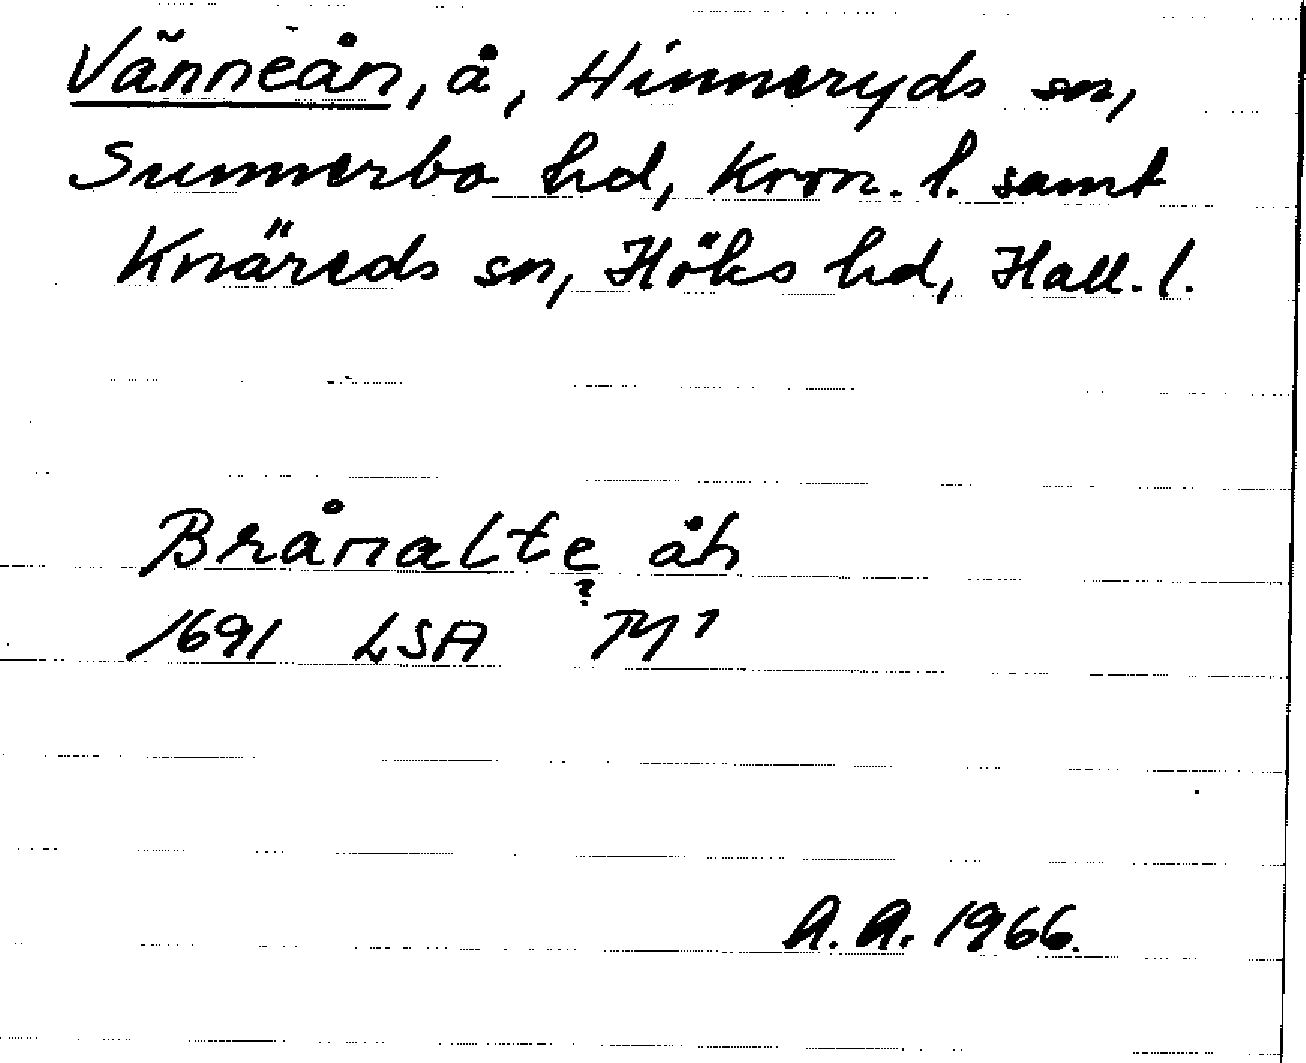 Vänneån, å, Hinneryds sn,
Sunnerbo hd, Kron. l. samt
Knäreds sn, Höks hd, Hall. l.
Brånalte åh
?
1691 LSA M¹
A.A. 1966.